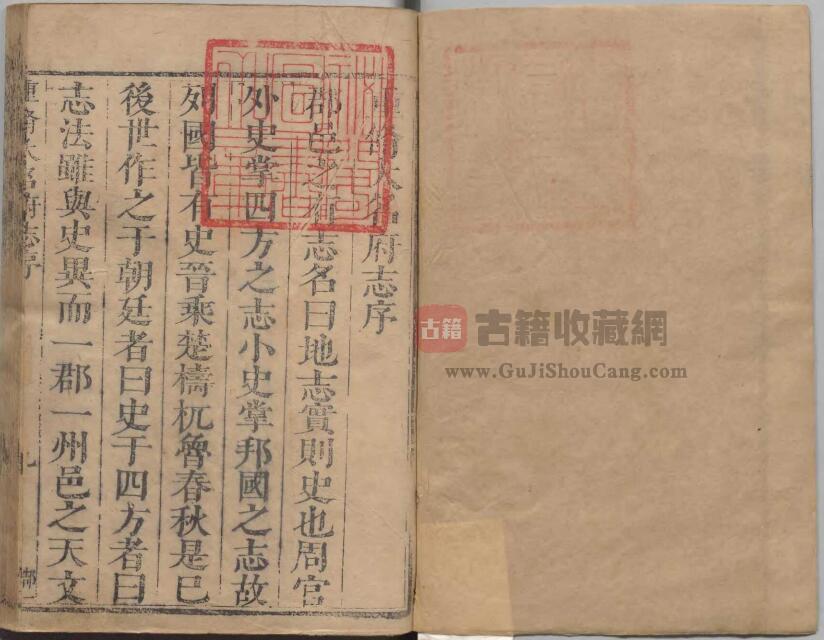 重脩大名府志序
郡邑之有志名曰地志實則史也周官
外史掌四方之志小史掌邦國之志故
列國皆有史晉乘楚檮杌魯春秋是已
後世作之于朝廷者曰史于四方者曰
志法雖與史異而一郡一州邑之天文
重脩大名府志序
古籍
古籍收藏網
www.GuJiShouCang.com